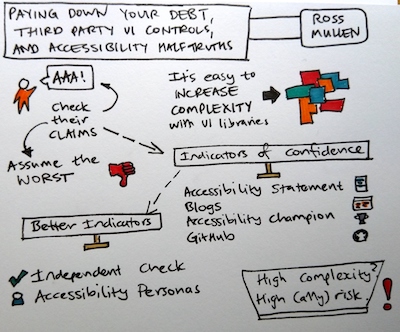 PAYING DOWN YOUR DEBT,
THIRD PARTY UI CONTROLS,
AND ACCESSIBILITY HALF-TRUTHS
ROSS
MULLEN
AAA!
Check
their
CLAIMS
Assume the
WORST
It's easy to
INCREASE
COMPLEXITY
with UI libraries
Indicators of Confidence
Accessibility Statement
Blogs
Accessibility Champion
GitHub
Better Indicators
Independent Check
Accessibility Personas
High Complexity?
High (a11y) risk.